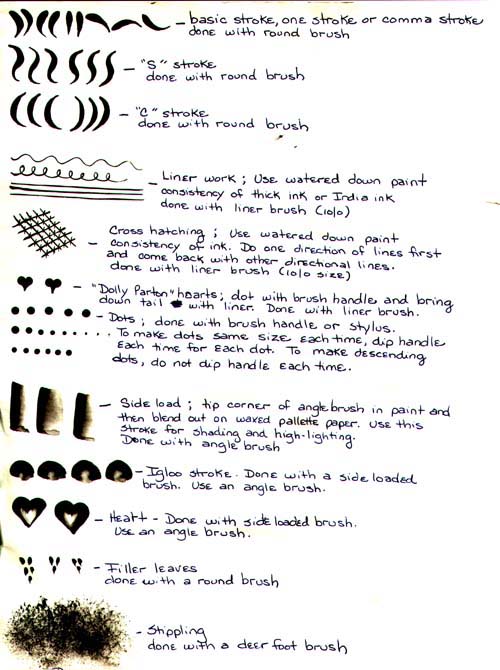 - basic stroke, one stroke or comma stroke
done with round brush
- "S" stroke
done with round brush
- "C" stroke
done with round brush
- Liner work; Use watered down paint
consistency of thick ink or India ink
done with liner brush (10/0)
Cross hatching; Use watered down paint
- consistency of ink. Do one direction of lines first
and come back with other directional lines.
done with liner brush (10/0 size)
- "Dolly Parton" hearts; dot with brush handle and bring
down tail with liner. Done with liner brush.
- Dots; done with brush handle or stylus.
To make dots same size each time, dip handle
Each time for each dot. To make descending
dots, do not dip handle each time.
- Side load; tip corner of angle brush in paint and
then blend out on waxed pallette paper. Use this
stroke for shading and high-lighting.
Done with angle brush
- Igloo stroke. Done with a side loaded
brush. Use an angle brush.
- Heart - Done with side loaded brush.
Use an angle brush.
- Filler leaves
done with a round brush
- Stippling
done with a deer foot brush